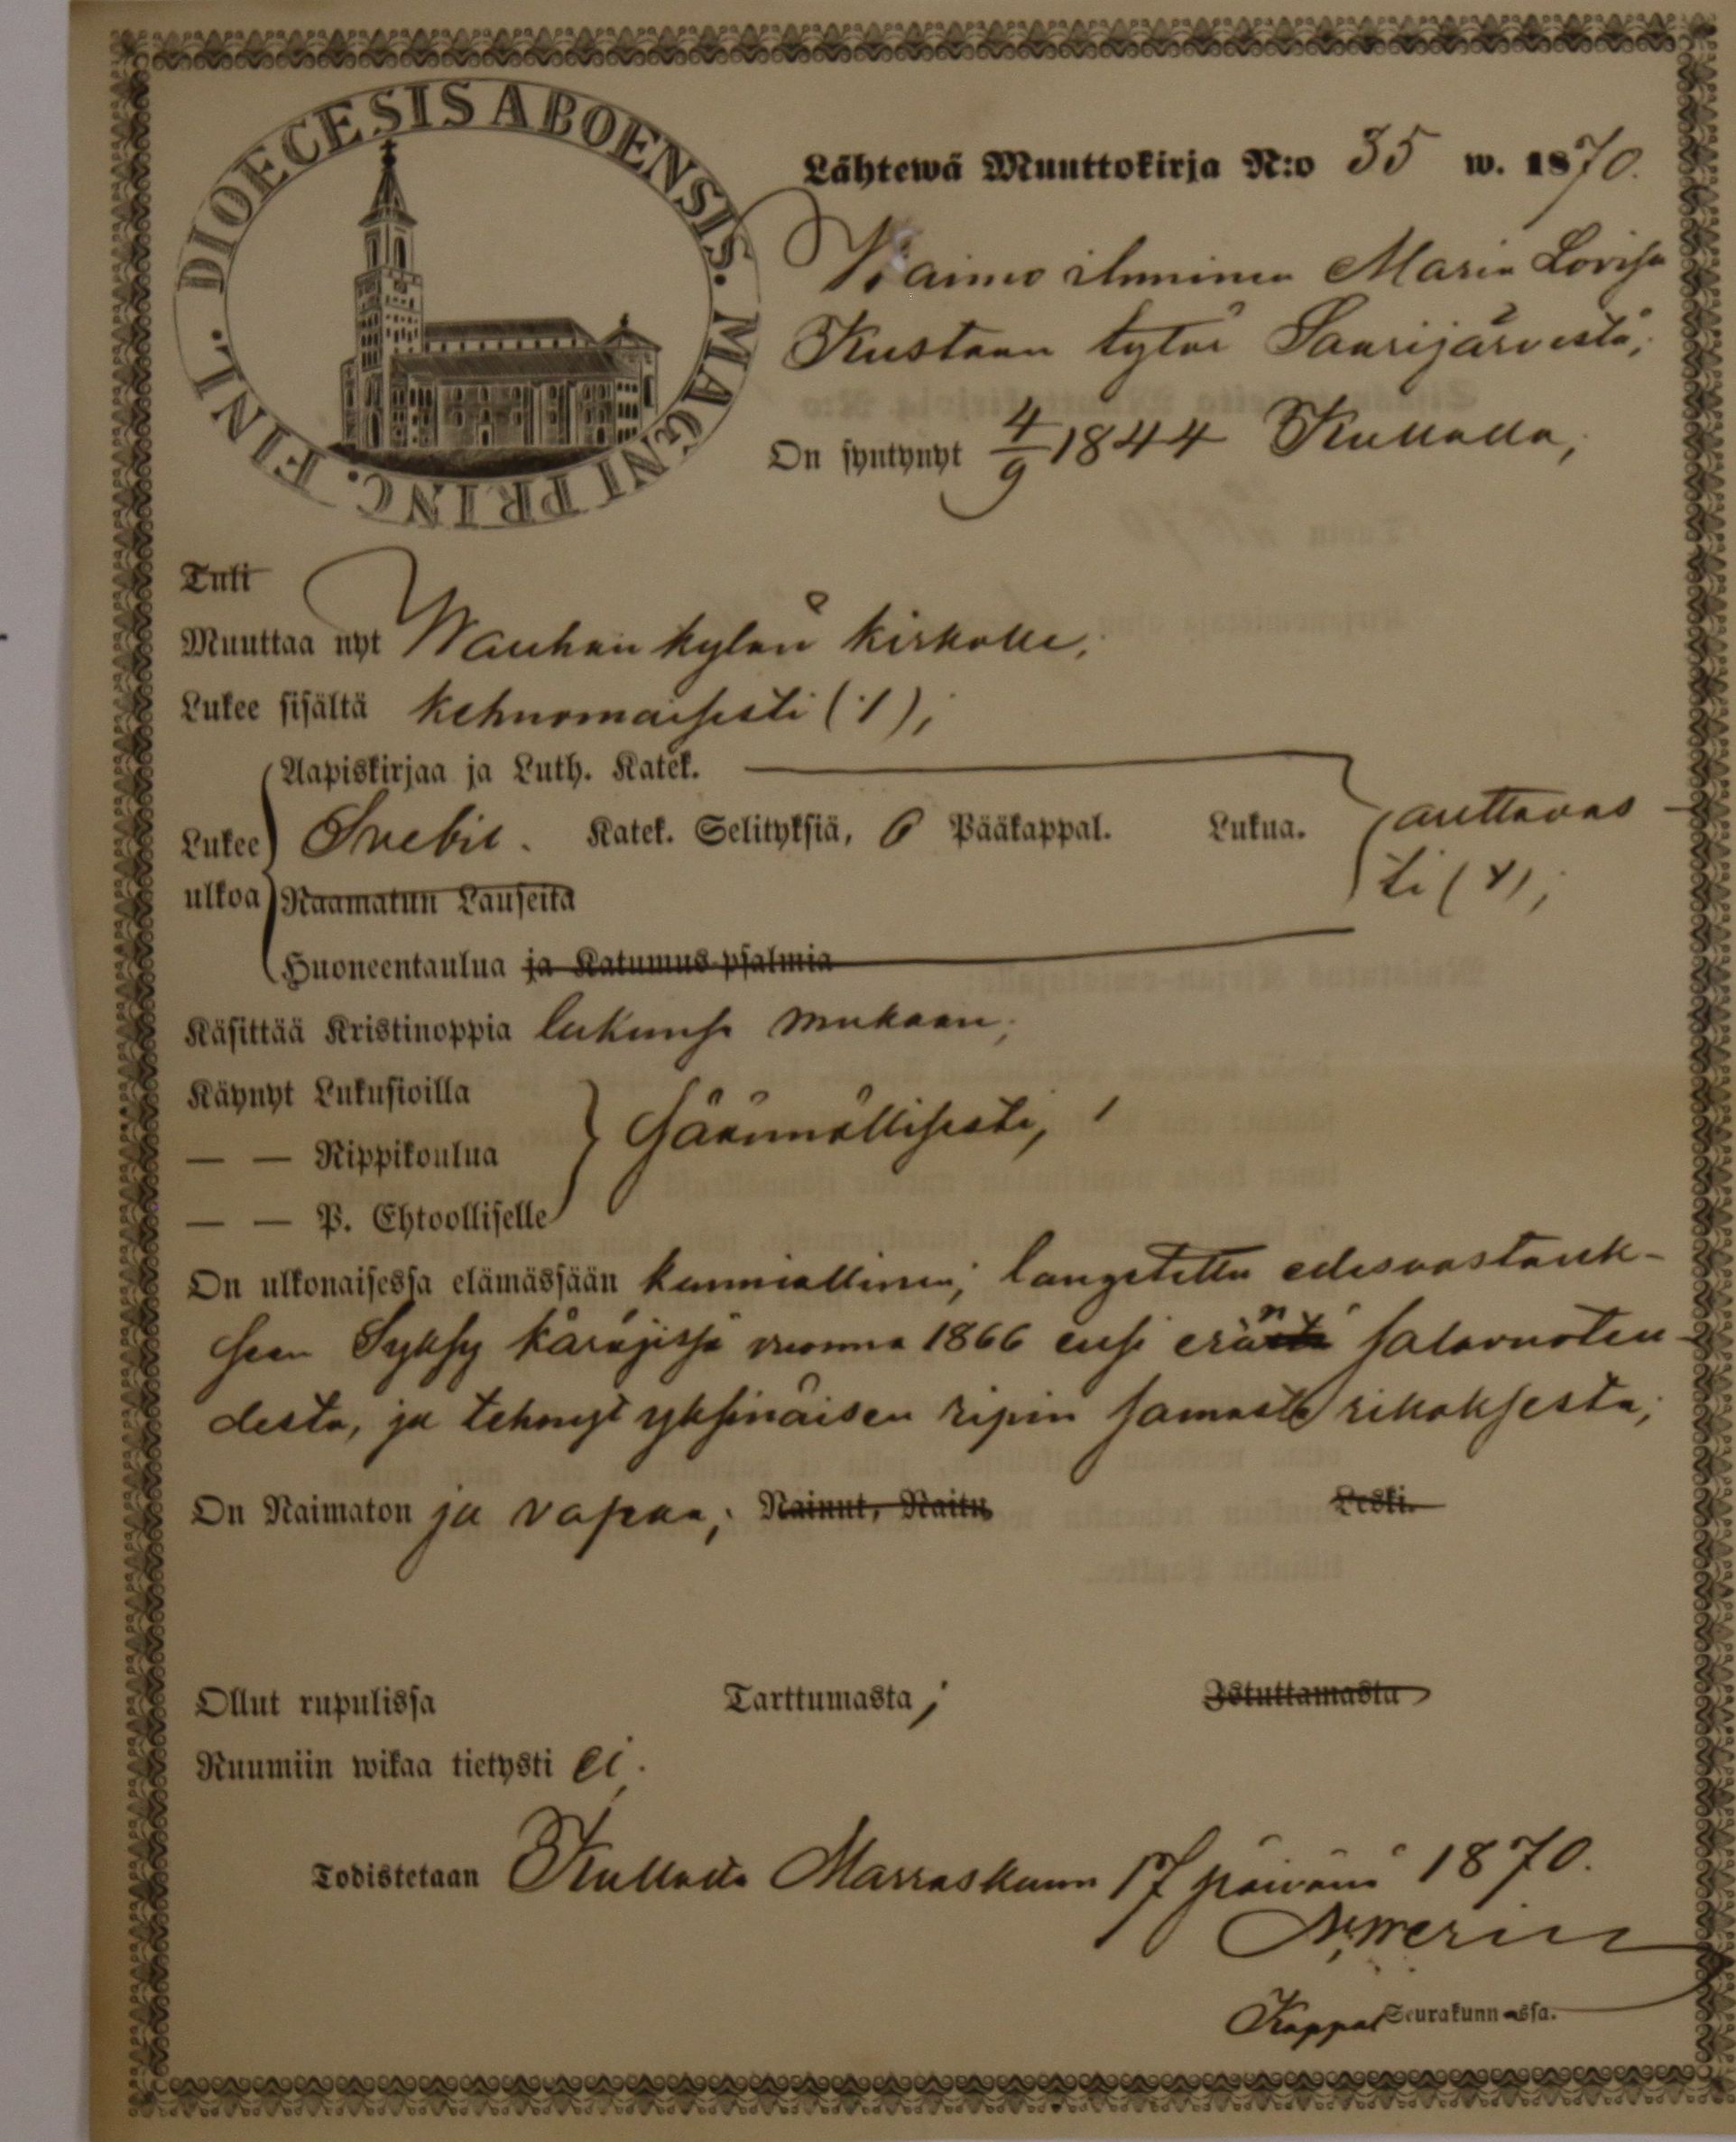 DIOECESIS ABOENSIS. MAGNI PRINC. FINL.
Lähtewä Muuttokirja N:o 35 w. 1870.
Waimo ihminen Maria Lovisa
Kustaan tytär Saarijärvestä;
On syntynyt 4/9 1844 Kullaalla;
Tuli
Muuttaa nyt Nauhan kylän kirkolle;
Lukee sisältä kehnomaisesti (1);
Aapiskirjaa ja Luth. Katek.
Lukee ulkoa Svebil. Katek. Selityksiä, 6 Pääkappal. Lukua. auttavas-
ti (x);
Raamatun Lauseita
Huoneentaulua ja Katumus-psalmia
Käsittää Kristinoppia lukunsa mukaan;
Käynyt Lukusioilla
— — Rippikoulua säännöllisesti;
— — P. Ehtoolliselle
On ulkonaisessa elämässään kunniallinen; langetettu edesvastauk-
seen Syksy käräjissä vuonna 1866 ensi erän salavuoteu-
desta, ja tehnyt yksinäisen ripin samasta rikoksesta;
On Naimaton ja vapaa; Nainut, Naitu, Leski.
Ollut rupulissa Tarttumasta; Istuttamasta
Ruumiin wikaa tietysti ei.
Todistetaan Kullaalla Marraskuun 17 päivänä 1870.
Kappal Seurakunnassa.